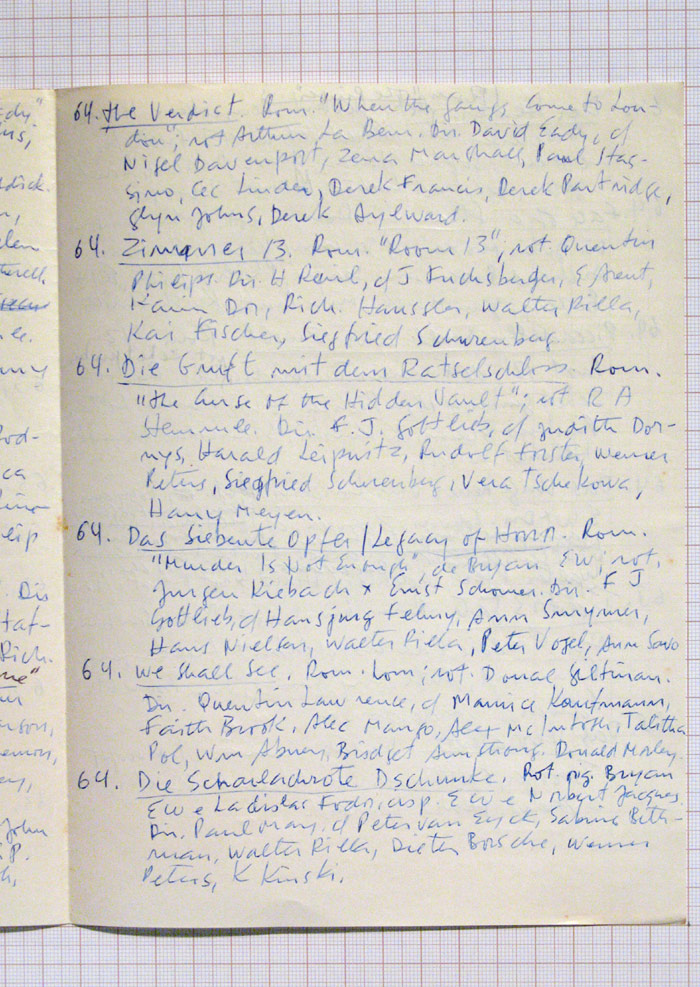 64. The Verdict. Rom. "When the Gangs Come to Lon-
don"; rot Arthur La Bern, Dir. David Eady, d
Nigel Davenport, Zena Marshall, Paul Stas-
sino, Cec Linder, Derek Francis, Derek Partridge,
Glyn Johns, Derek Aylward.
64. Zimmer 13. Rom. "Room 13", rot Quentin
Philips. Dir. H Reinl, d J Fuchsberger, E Arent,
Karin Dor, Rich. Haussler, Walter Rilla,
Kai Fischer, Siegfried Schurenberg
64. Die Gruft mit dem Ratselschloss. Rom.
"The Curse of the Hidden Vault"; rot R A
Stemmle. Dir. F. J. Gottlieb, d Judith Dor-
nys, Harald Leipnitz, Rudolf Forster, Werner
Peters, Siegfried Schurenberg, Vera Tschekowa,
Harry Meyen.
64. Das Siebente Opfer / Legacy of Horror. Rom.
"Murder Is Not Enough", de Bryan EW; rot.
Jurgen Kiebach x Ernst Schomer. Dir. F J
Gottlieb, d Hansjorg Felmy, Ann Smyrner,
Hans Nielsen, Walter Rilla, Peter Vogel, Ann Savo
64. We Shall See. Rom. Lom; rot. Donal Giltinan.
Dir. Quentin Lawrence, d Maurice Kaufmann,
Faith Brook, Alec Mango, Alex McIntosh, Talitha
Pol, Wm Abney, Bridget Armstrong. Donald Morley.
64. Die Scharlachrote Dschunke. Rot. orig. Bryan
EW e Ladislas Fodor, insp. EW e Norbert Jacques.
Dir. Paul May, d Peter van Eyck, Sabine Beth-
man, Walter Rilla, Dieter Borsche, Werner
Peters, K Kinski.